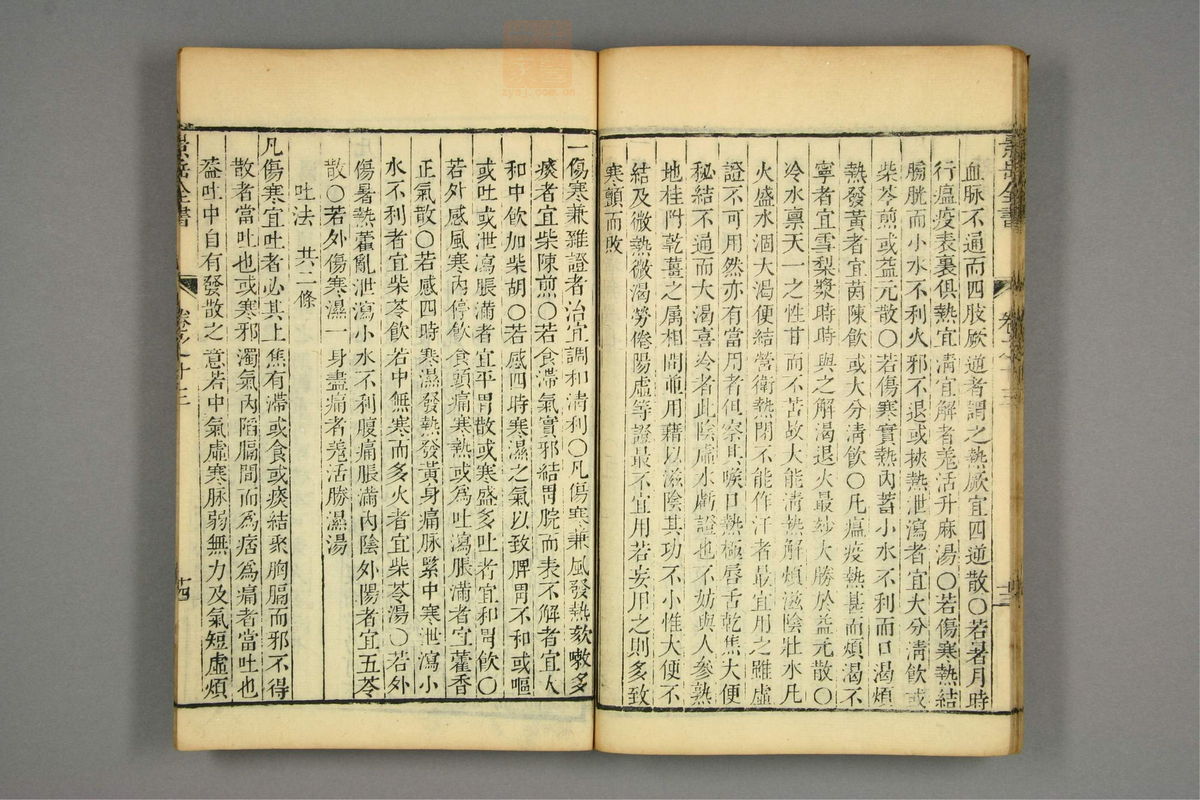 血脉不通而四肢厥逆者謂之熱厥宜四逆散○若暑月時
行瘟疫表裏俱熱宜清宜解者羗活升麻湯○若傷寒熱結
膀胱而小水不利火邪不退或挾熱泄瀉者宜大分清飲或
柴苓煎或益元散○若傷寒實熱內蓄小水不利而口渴煩
熱發黃者宜茵陳飲或大分清飲○凡瘟疫熱甚而煩渴不
寧者宜雪梨漿時時與之解渴退火最妙大勝於益元散○
冷水稟天一之性甘而不苦故大能清熱解煩滋陰壯水凡
火盛水涸大渴便結營衛熱閉不能作汗者最宜用之雖虛
證不可用然亦有當用者但察其喉口熱極唇舌乾焦大便
秘結不通而大渴喜冷者此陰虛水虧證也不妨與人參熟
地桂附乾薑之属相間並用藉以滋陰其功不小惟大便不
結及微熱微渴勞倦陽虛等證最不宜用若妄用之則多致
寒顫而敗
一傷寒兼雜證者治宜調和清利○凡傷寒兼風發熱欬嗽多
痰者宜柴陳煎○若食滯氣實邪結胃脘而表不解者宜人
和中飲加柴胡○若感四時寒濕之氣以致脾胃不和或嘔
或吐或泄瀉脹滿者宜平胃散或寒盛多吐者宜和胃飲○
若外感風寒內停飲食頭痛寒熱或為吐瀉脹滿者宜藿香
正氣散○若感四時寒濕發熱發黃身痛脉緊中寒泄瀉小
水不利者宜柴苓飲若中無寒而多火者宜柴苓湯○若外
傷暑熱藿亂泄瀉小水不利腹痛脹滿內陰外陽者宜五苓
散○若外傷寒濕一身盡痛者羗活勝濕湯
吐法 共二條
凡傷寒宜吐者必其上焦有滯或食或痰結聚胸膈而邪不得
散者當吐也或寒邪濁氣內陷膈間而為痞為痛者當吐也
葢吐中自有發散之意若中氣虛寒脉弱無力及氣短虛煩
景岳全書
卷之十三
廿四